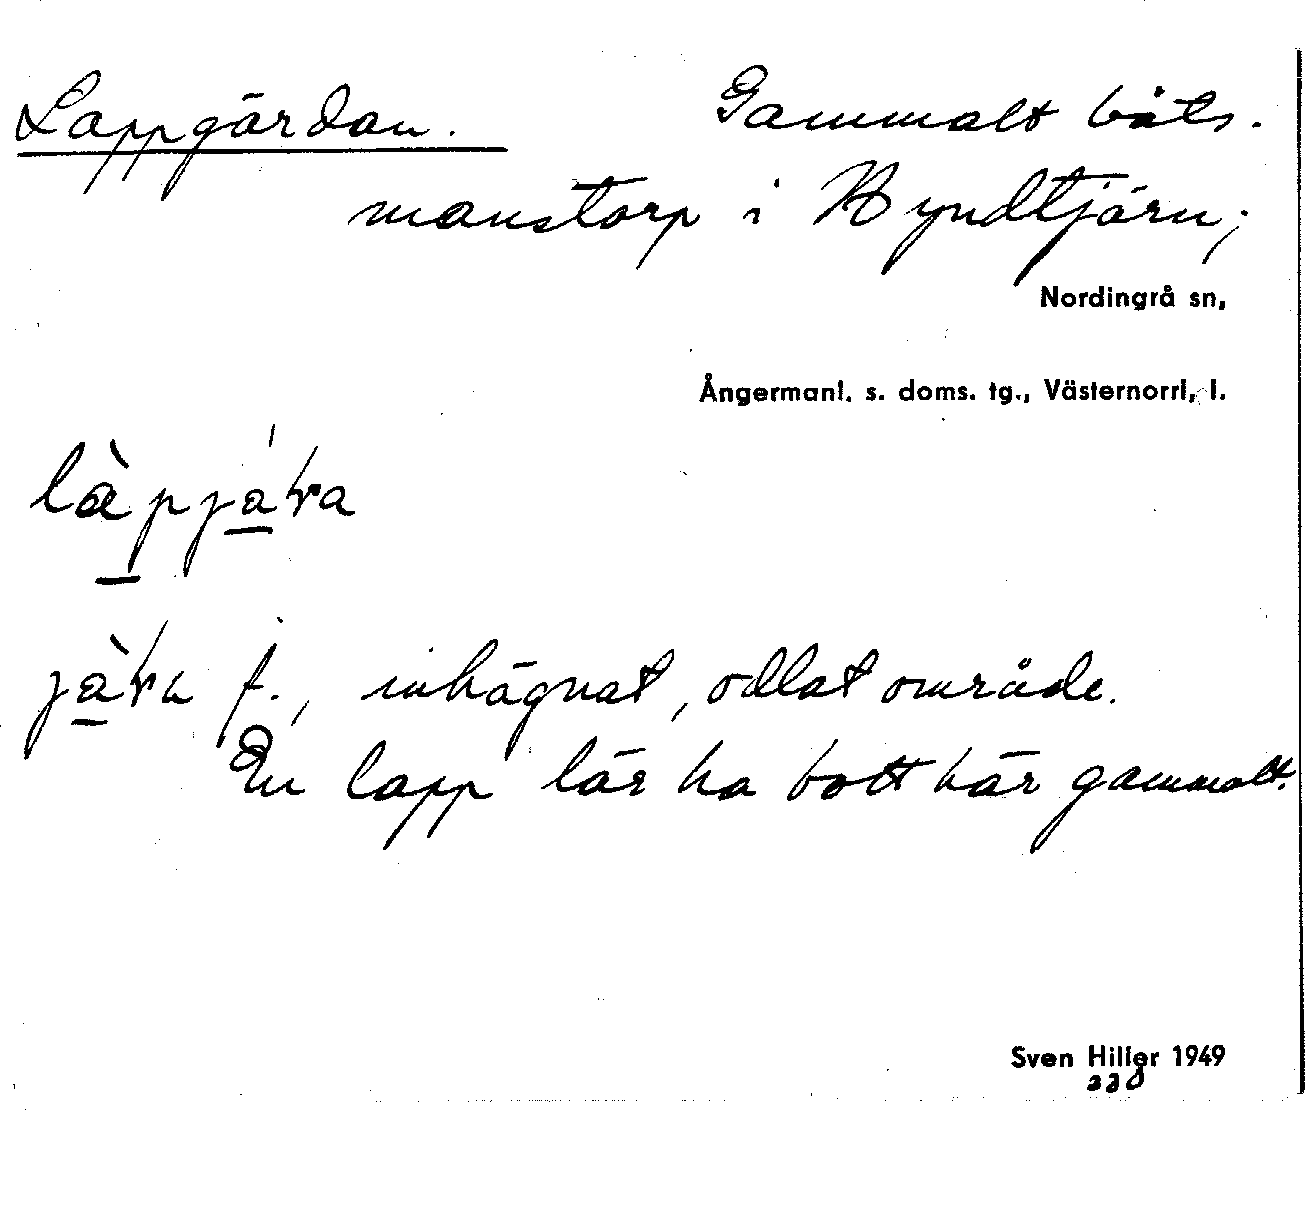 Lappgärdan. Gammalt båts-
manstorp i Hyndtjärn;
Nordingrå sn,
Ångermanl. s. doms. tg., Västernorrl, l.
f., inhägnat, odlat område.
En lapp lär ha bott här gammalt.
Sven Hiller 1949